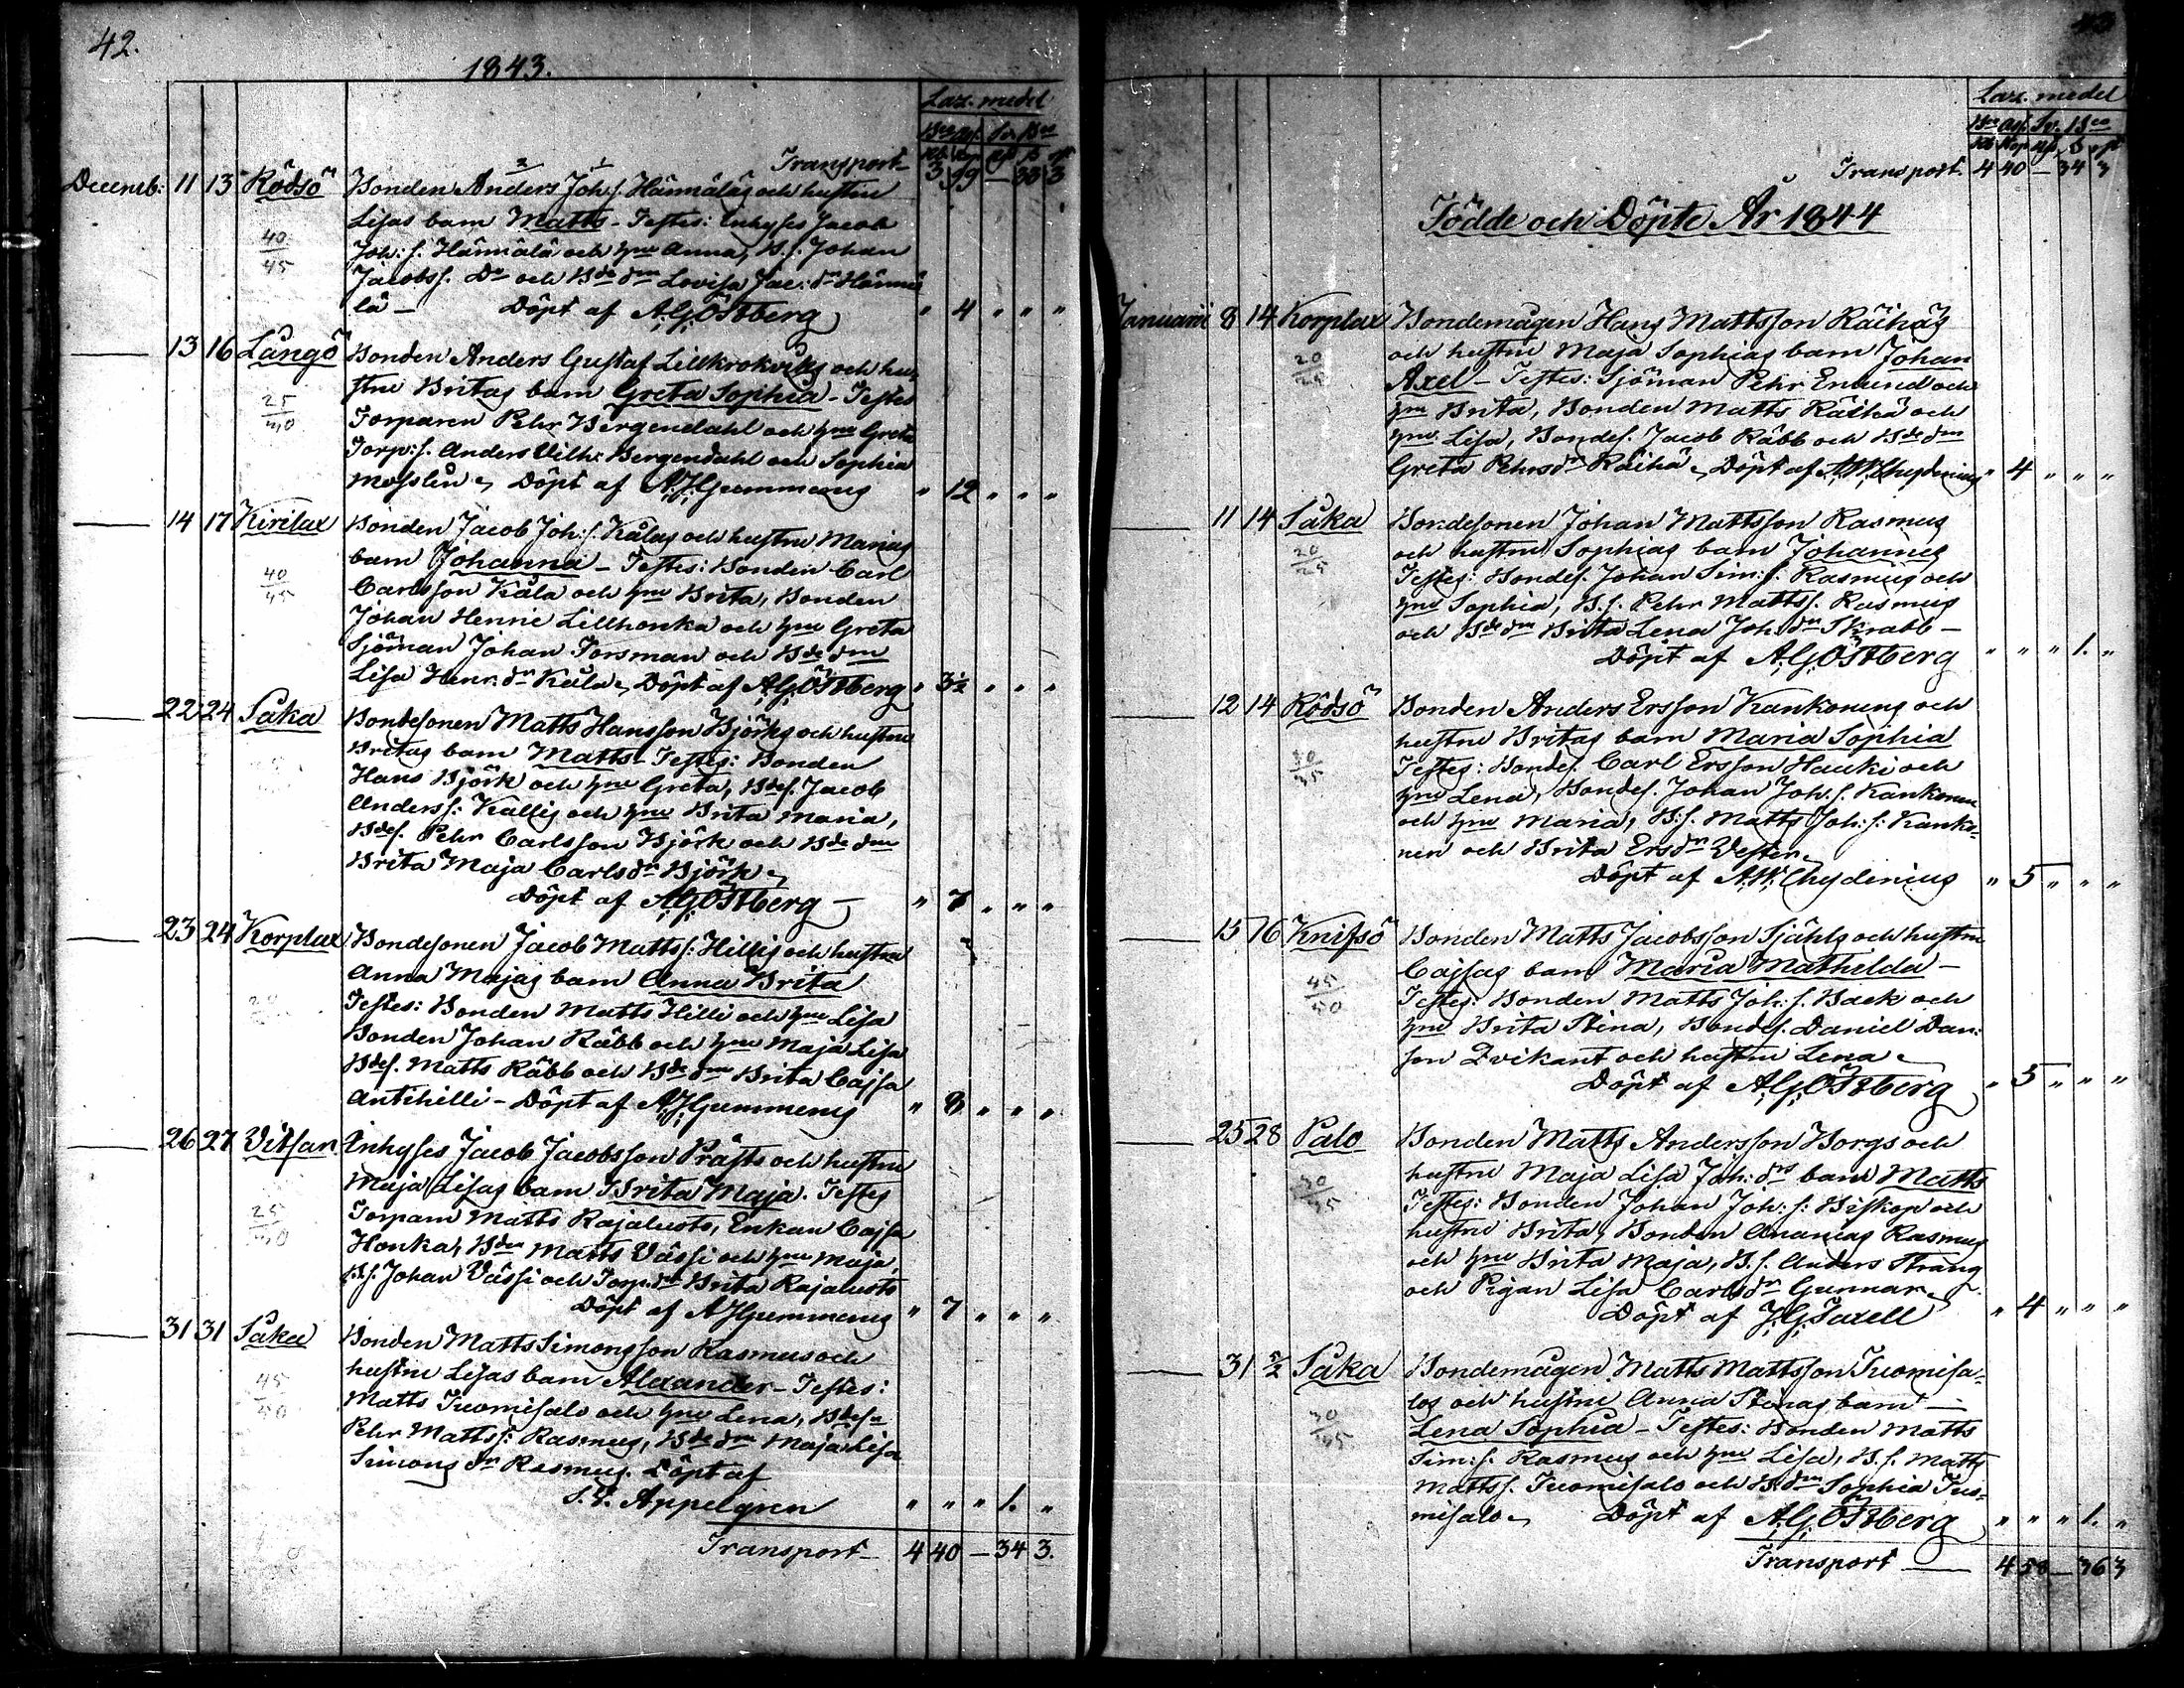 42.
1843.
Laz. medel
Bco Ass. Sv. Bco
Rb. Kop. Rd. s. rst.
Transport 3 99 — 33 3
Decemb: 11 13 Rödsö Bonden Anders Joh: s. Hännäläs och hustru
Lisas barn Matts – Testes: Inhyses Jacob
40
45
Joh: s. Hännälä och hru Anna, B. s. Johan
Jacobs s. Do och Bde dtn Lovisa Jac: dr Hännä
lä – Döpt af A. G. Östberg " 4 " " "
13 16 Långö Bonden Anders Gustaf Lillkrokviks och hu-
stru Britas barn Greta Sophia – Testes
25
30
Torparen Pehr Bergendahl och hru Greta
Torp: s. Anders Vilh: Bergendahl och Sophia
Döpt af A. J. Gummerus " 12 " " "
14 17 Kirilax Bonden Jacob Joh: s. Kålas och hustru Marias
barn Johanna – Testes: Bonden Carl
40
45
Carlsson Kåla och hru Brita, Bonden
Johan Henric Lillhonka och hru Greta
Sjöman Johan Forsman och Bde dtn
Lisa Henr. dr Kåla, Döpt af A. G. Östberg " 3½ " " "
22 24 Såka Bondesonen Matts Hansson Björks och hustru
Britas barn Matts – Testes: Bonden
Hans Björk och hru Greta, Bdes. Jacob
Anders s. Kallis och hru Brita Maria,
Bdes. Pehr Carlsson Björk och Bde dtn
Brita Maja Carlsdr Björk
Döpt af A. G. Östberg – " 7 " " "
23 24 Korplax Bondesonen Jacob Matts s: Hillis och hustru
Anna Majas barn Anna Brita
20
Testes: Bonden Matts Hilli och hru Lisa
Bonden Johan Räbb och hru Maja Lisa
Bdes. Matts Räbb och Bde dtn Brita Cajsa
Antihilli – Döpt af A. J. Gummerus " 8 " " "
26 27 Vitsar Inhyses Jacob Jacobsson Prästs och hustru
Maja Lisas barn Brita Maja. Testes
25
30
Torparn Matts Rajalusto, Enkan Cajsa
Honka, Bden Matts Vässi och hru Maja,
B. s. Johan Vässi och Torp. dr Brita Rajalusto
Döpt af A J Gummerus " 7 " " "
31 31 Såka Bonden Matts Simonsson Rasmus och
hustru Lisas barn Alexander – Testes:
45
50
Matts Tuomisalo och hru Lena, Bdesn
Pehr Matts s: Rasmus, Bde dtn Maja Lisa
Simons dr Rasmus. Döpt af
Appelgren " " " 1. "
Transport – 4 40 – 34 3.
43
Laz. medel
Bco Ass. Sv. Bco
Rb Kop Rd. s. rst
Transport. 4 40 – 34 3
Födde och Döpte År 1844
Januarii 8 14 Korplax Bondemågen Hans Mattsson Räihäs
och hustru Maja Sophias barn Johan
20
25
Axel – Testes: Sjöman Pehr Enlund och
hru Brita, Bonden Matts Räihä och
hru Lisa, Bondes. Jacob Räbb och Bde dtn
Greta Pehrsdr Räihä, Döpt af A. W. Chydenius " 4 " " "
11 14 Såka Bondesonen Johan Mattsson Rasmus
och hustru Sophias barn Johannes
20
25
Testes: Bondes. Johan Sim: s. Rasmus och
hru Sophia, B. s. Pehr Matts s. Rasmus
och Bde dtn Brita Lena Joh: dr Skrabb –
Döpt af A. G. Östberg " " " 1. "
12 14 Rödsö Bonden Anders Ersson Kankonens och
hustru Britas barn Maria Sophia
30
35
Testes: Bondes. Carl Ersson Hauki och
hru Lena, Bondes. Johan Joh. s. Kankonen
och hru Maria, B: s. Matts Joh: s: Kanko-
nen och Brita Ersdr Vester
Döpt af A. W. Chydenius " 5 " " "
15 16 Knifsö Bonden Matts Jacobsson Sjähls och hustru
Cajsas barn Maria Mathilda –
45
50
Testes: Bonden Matts Joh: s. Back och
hru Brita Stina, Bondes. Daniel Dan:
son Qvikant och hustru Lena
Döpt af A. G. Östberg " 5 " " "
25 28 Palo Bonden Matts Andersson Borgs och
hustru Maja Lisa Joh: drs barn Matts
30
35
Testes: Bonden Johan Joh: s: Biskop och
hustru Brita, Bonden Ananias Rasmus
och hru Brita Maja, B. s. Anders Strang
och Pigan Lisa Carlsdr Gunnar
Döpt af J. G. Saxell " 4 " " "
31 2/2 Såka Bondemågen Matts Mattsson Tuomisa-
los och hustru Anna Stinas barn –
30
35
Lena Sophia – Testes: Bonden Matts
Sim: s. Rasmus och hru Lisa, B. s. Matts
Matts s. Tuomisalo och B. dtn Sophia Tuo-
misalo, Döpt af A. G. Östberg " " " 1. "
Transport 4 58 – 36 3